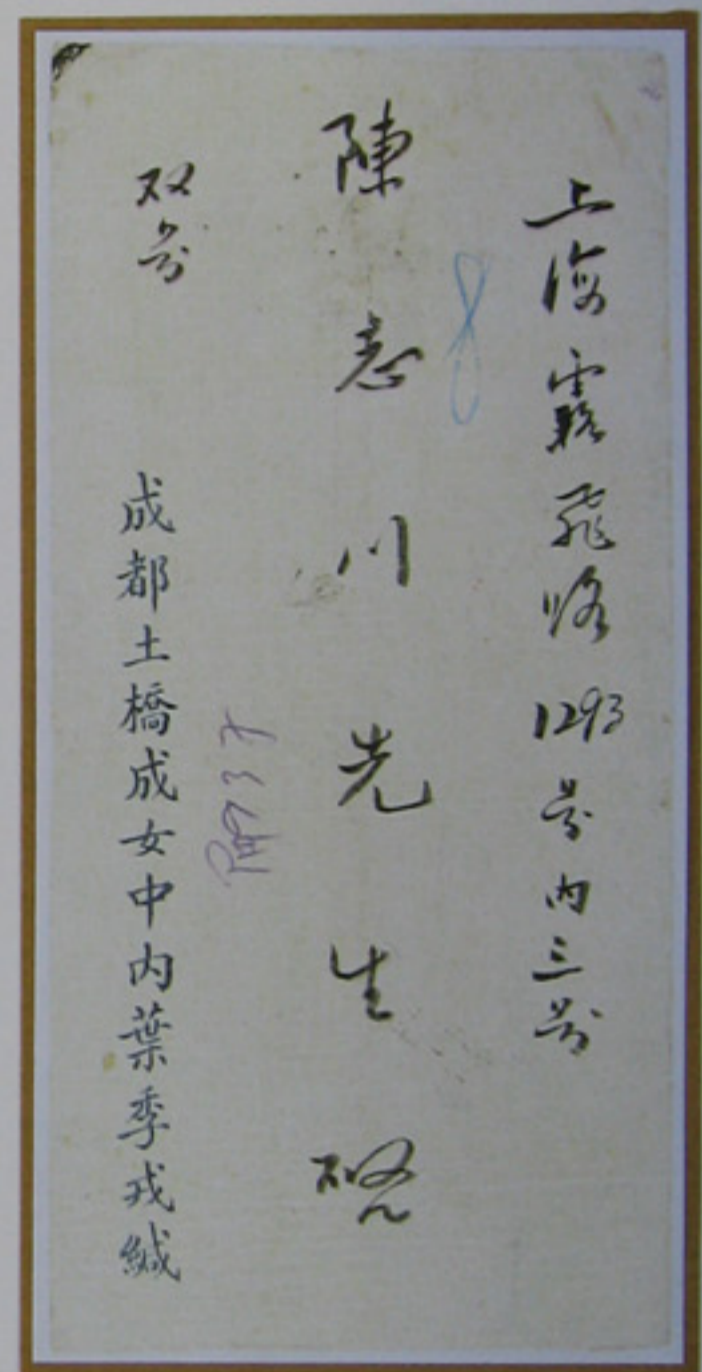 上海霞飛路1293号内三号
陳志川先生啓
双号
成都土橋成女中内葉季戎緘